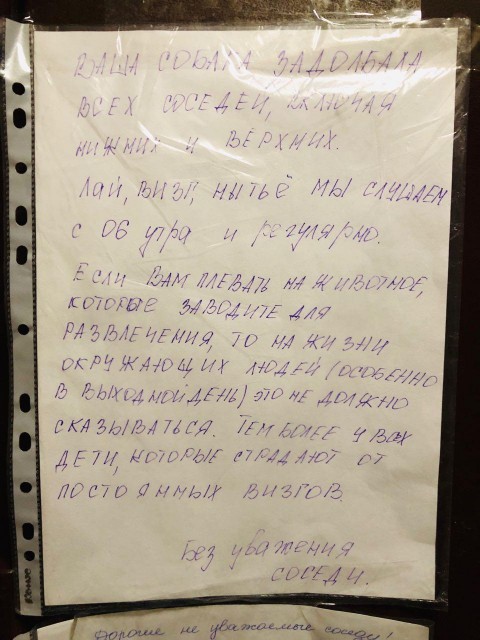 ВАША СОБАКА ЗАДОЛБАЛА
ВСЕХ СОСЕДЕЙ, ВКЛЮЧАЯ
НИЖНИХ И ВЕРХНИХ.
ЛАЙ, ВИЗГ, НЫТЬЁ МЫ СЛУШАЕМ
С 06 утра и регулярно.
ЕСЛИ ВАМ ПЛЕВАТЬ НА ЖИВОТНОЕ,
КОТОРЫЕ ЗАВОДИТЕ ДЛЯ
РАЗВЛЕЧЕНИЯ, ТО НА ЖИЗНИ
ОКРУЖАЮЩИХ ЛЮДЕЙ (ОСОБЕННО
В ВЫХОДНОЙ ДЕНЬ) ЭТО НЕ ДОЛЖНО
СКАЗЫВАТЬСЯ. ТЕМ БОЛЕЕ У ВСЕХ
ДЕТИ, КОТОРЫЕ СТРАДАЮТ ОТ
ПОСТОЯННЫХ ВИЗГОВ.
Без уважения
СОСЕДИ.
Дорогие не уважаемые соседи!